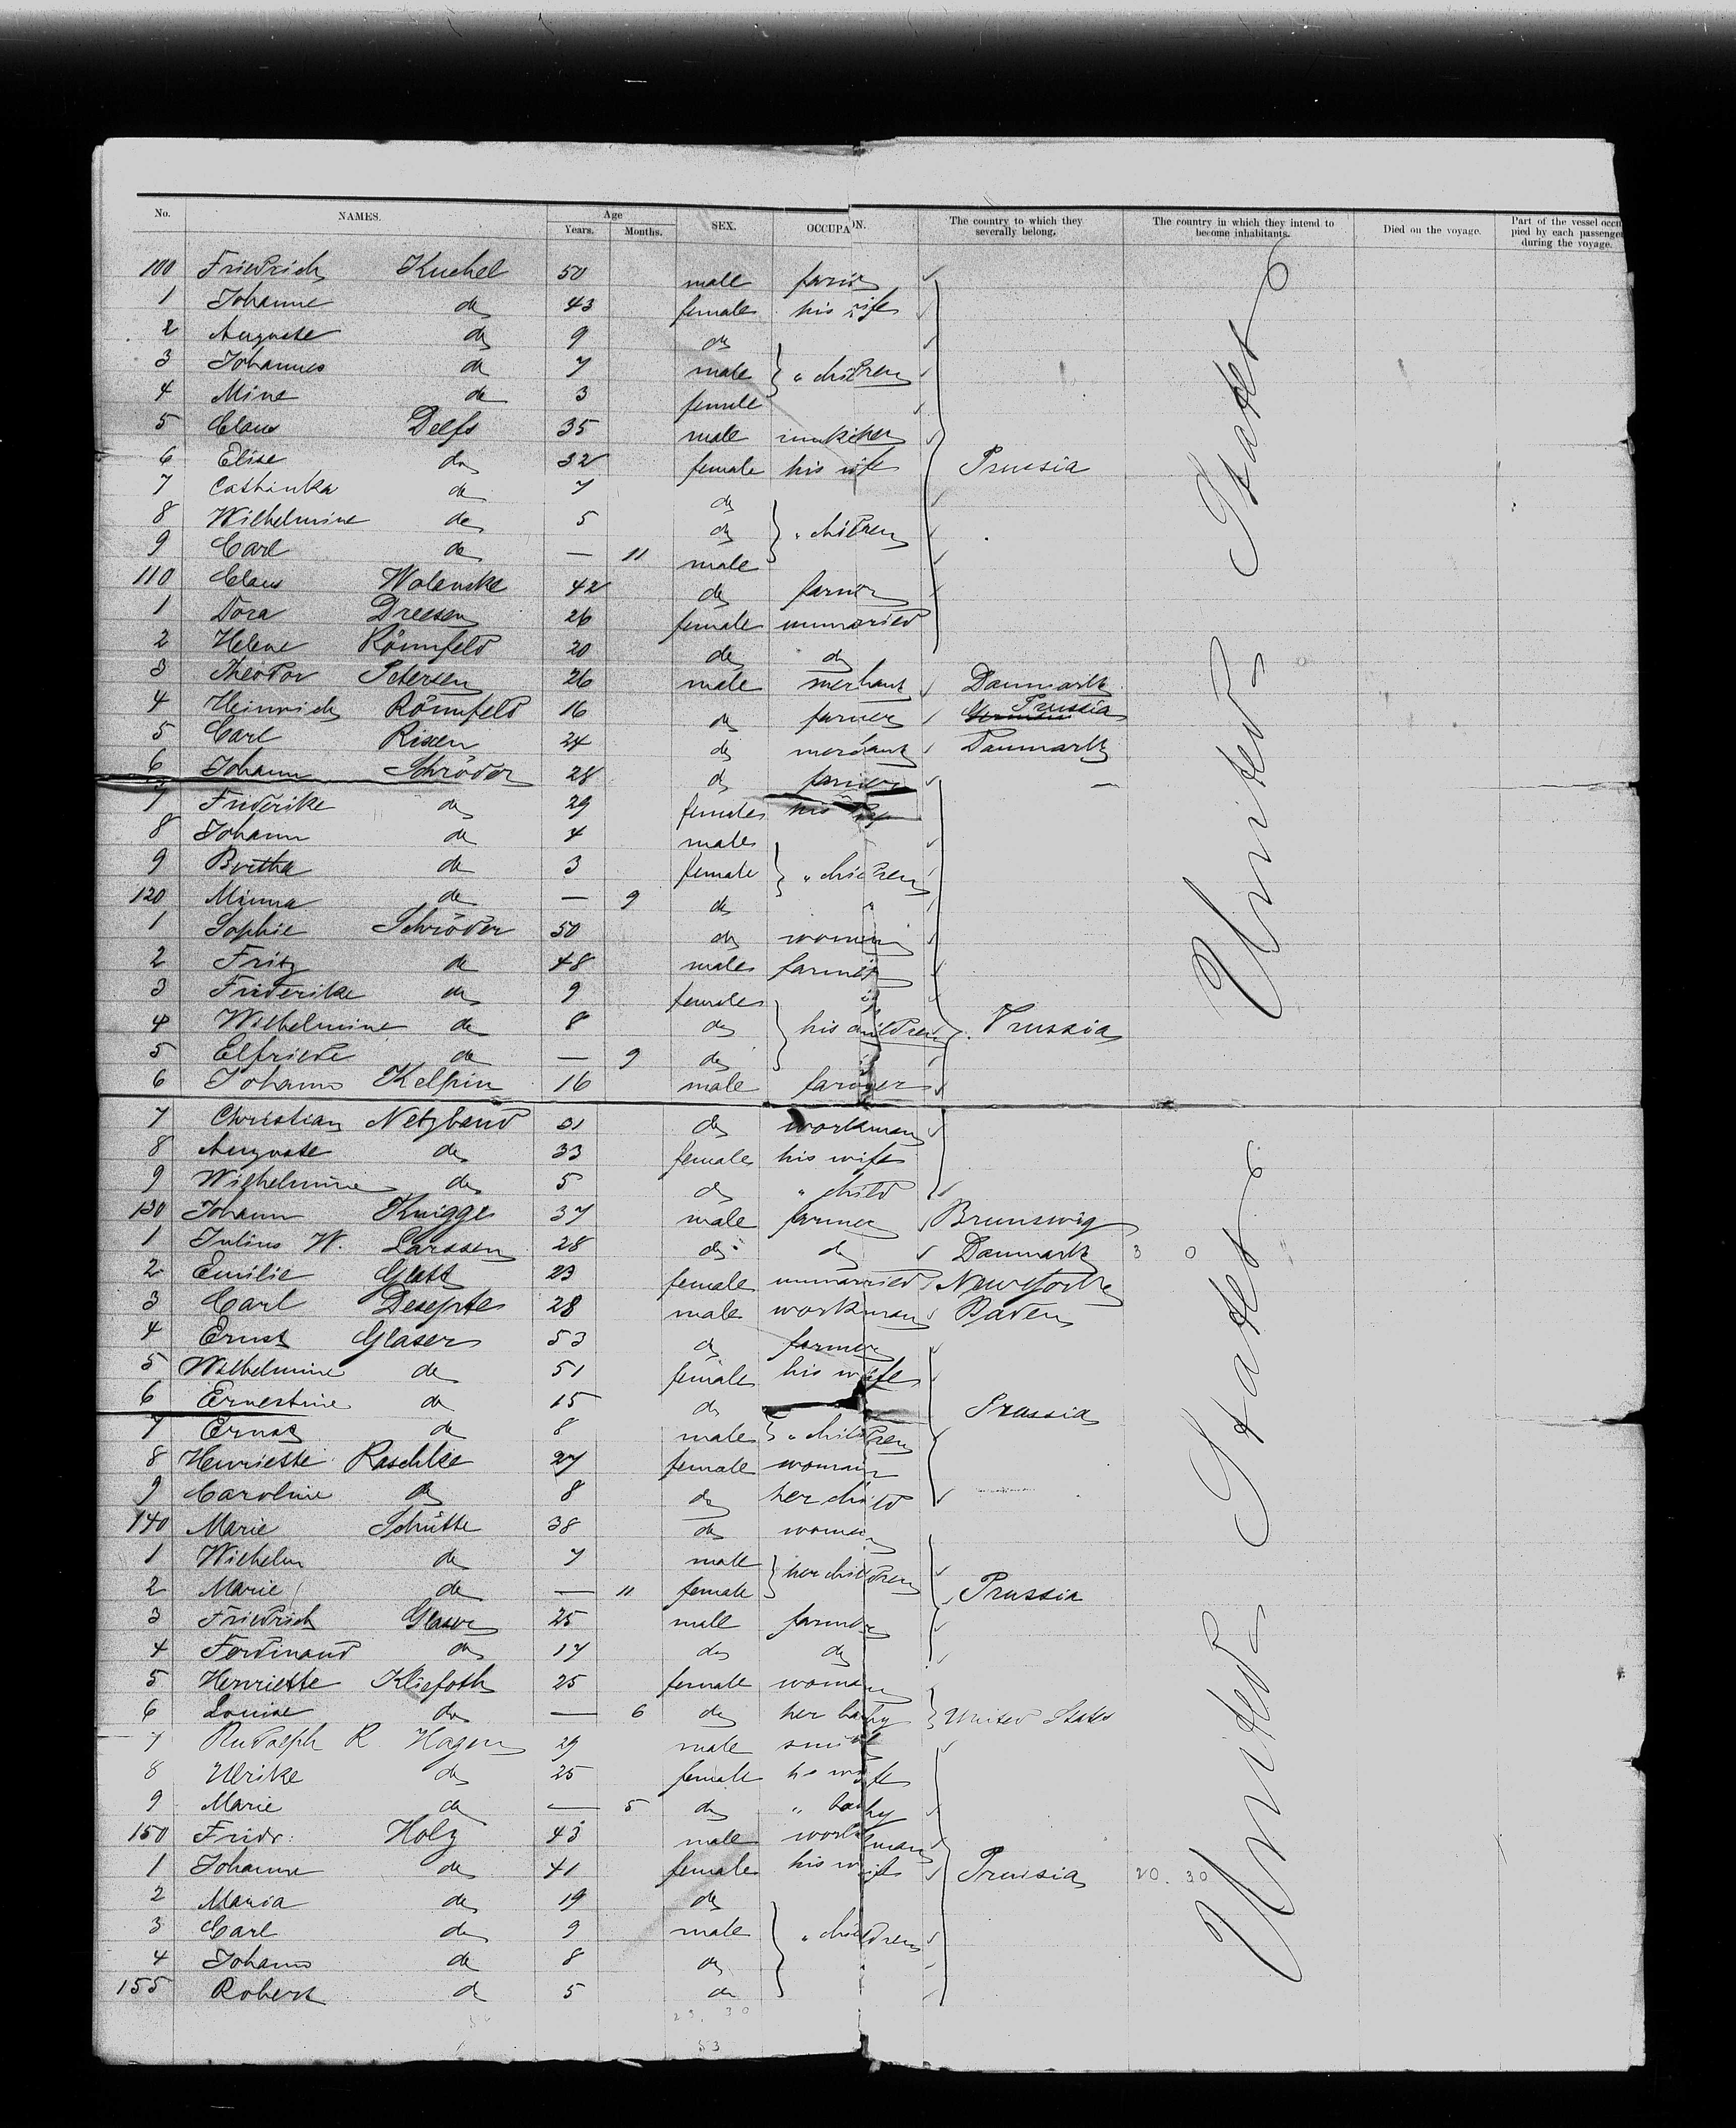 No. NAMES. Age Years. Months. SEX. OCCUPATION. The country to which they severally belong. The country in which they intend to become inhabitants. Died on the voyage. Part of the vessel occupied by each passenger during the voyage.
100 Friedrich Kuchel 50 male
1 Johanne do 43 female his wife
2 Auguste do 9 do
3 Johannes do 7 male " children
4 Mine do 3 female
5 Claus Delfs 35 male
6 Elise do 32 female his wife Prussia
7 Cathinka do 7 do
8 Wilhelmine do 5 do " children
9 Carl do — 11 male
110 Claus Wolenske 42 do farmer
1 Dora Dreesen 26 female unmaried
2 Helene Rönnfeld 20 do do
3 Theodor Petersen 26 male merhant Danmark
4 Heinrich Rönnfeld 16 do farmer Prussia
5 Carl Rixen 24 do merchant Danmark
6 Johann Schröder 28 do farmer —
7 Friderike do 29 female his
8 Johann do 4 male
9 Bertha do 3 female " children
120 Minna do — 9 do "
1 Sophie Schröder 50 do woman
2 Fritz do 48 male farmer
3 Friderike do 9 female
4 Wilhelmine do 8 do his children Prussia
5 Elfriede do — 9 do
6 Johann Kelpin 16 male farmer
7 Christian Netzband 31 do workman
8 Auguste do 33 female his wife
9 Wilhelmine do 5 do " child
130 Johann Knigge 37 male farmer Brunswig
1 Julius W. Larssen 28 do do Danmark 3 0
2 Emilie Glatt 23 female unmarried New York
3 Carl 28 male workman Baden
4 Ernst Glaser 53 do farmer
5 Wilhelmine do 51 female his wife
6 Ernestine do 15 do Prussia
7 Ernst do 8 male " children
8 Henriette Raschke 27 female woman
9 Caroline do 8 do her child
140 Marie Schütte 38 do woman
1 Wilhelm do 7 male her children
2 Marie do — 11 female Prussia
3 Friedrich Glaser 25 male farmer
4 Ferdinand do 17 do do
5 Henriette Kliefoth 25 female woman
6 Louise do — 6 do her baby United States
7 Rudolph R. Hagen 29 male smith
8 Ulrike do 25 female his wife
9 Marie do — 5 do " baby
150 Fridr. Holz 43 male workman
1 Johanne do 41 female his wife Prussia 20. 30
2 Maria do 19 do
3 Carl do 9 male " children
4 Johann do 8 do
155 Robert do 5 do
23. 30
53
United States
United States